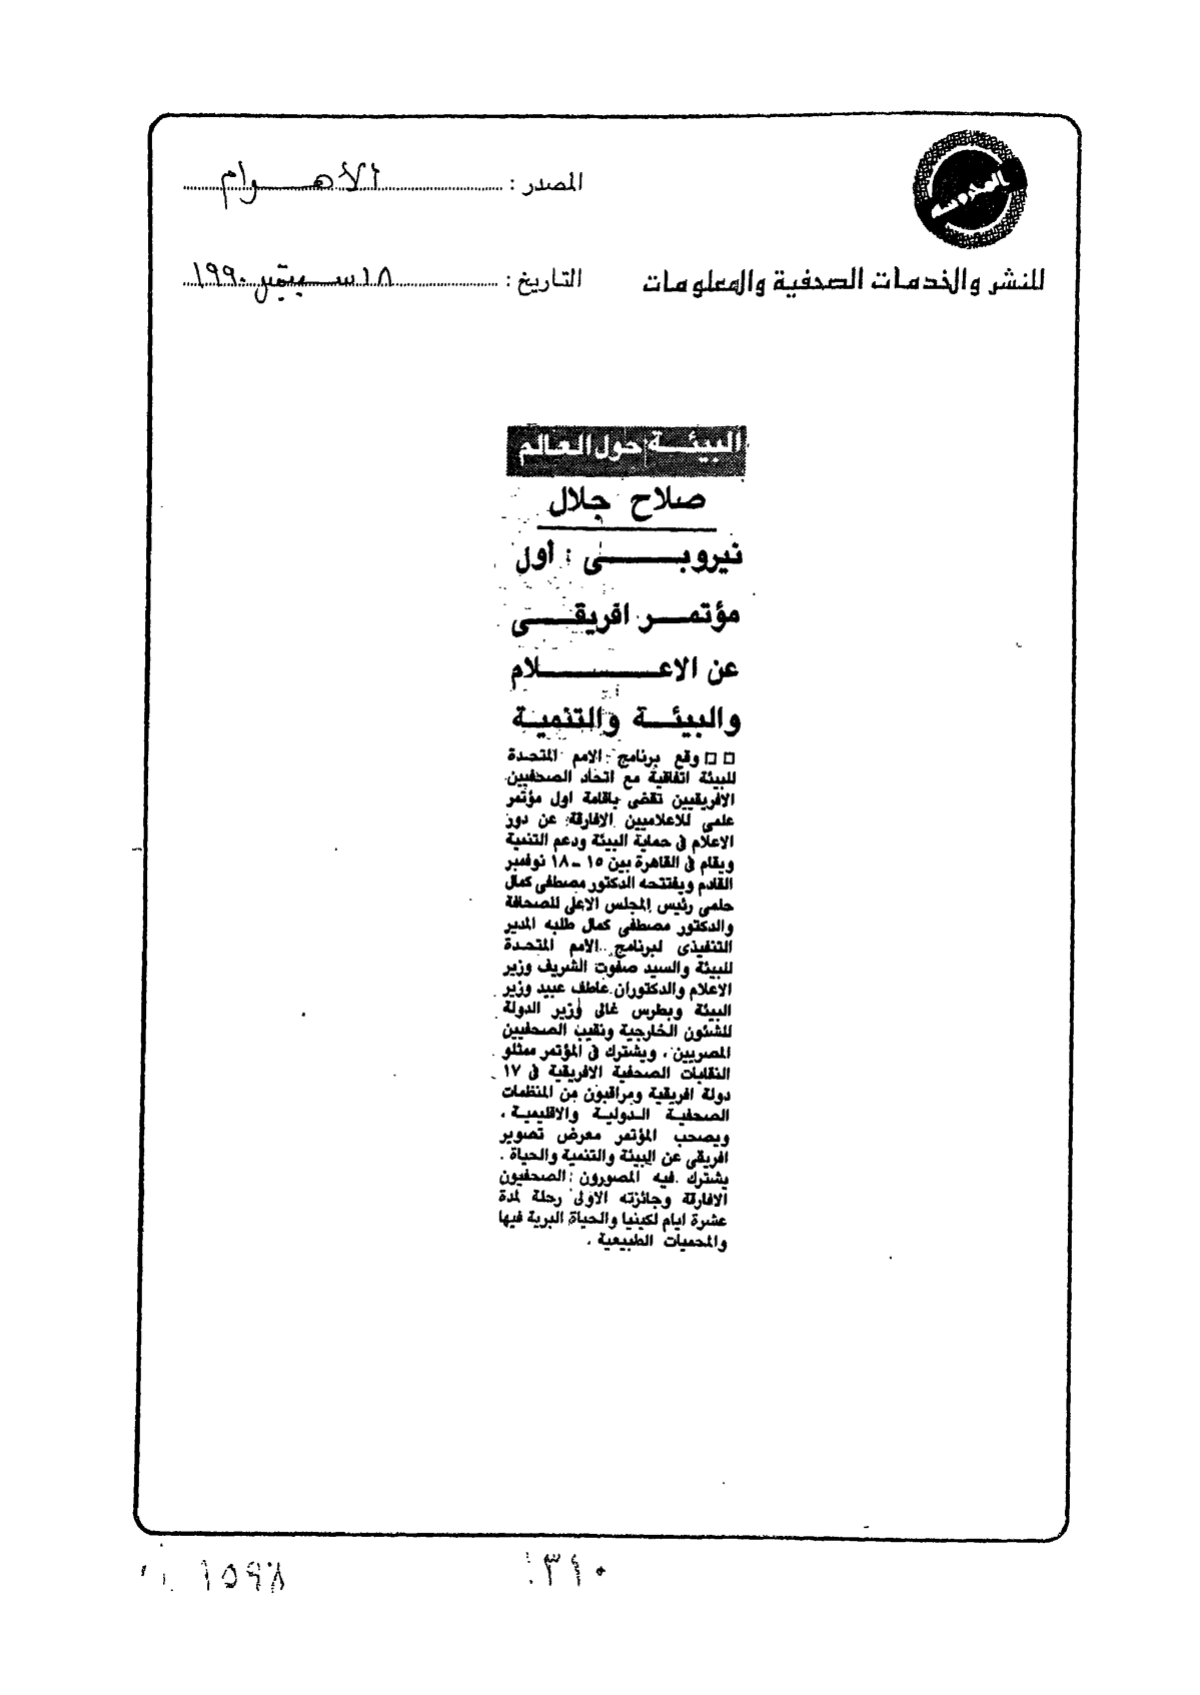 المحروسة
للنشر والخدمات الصحفية والمعلومات
المصدر : الأهرام
التاريخ : ١٨ سبتمبر ١٩٩٠
البيئة حول العالم
صلاح جلال
نيروبى : أول
مؤتمر افريقى
عن الاعلام
والبيئة والتنمية
□□ وقع برنامج الامم المتحدة
للبيئة اتفاقية مع اتحاد الصحفيين
الافريقيين تقضى باقامة اول مؤتمر
علمى للاعلاميين الافارقة عن دور
الاعلام فى حماية البيئة ودعم التنمية
ويقام فى القاهرة بين ١٥ - ١٨ نوفمبر
القادم ويفتتحه الدكتور مصطفى كمال
حلمى رئيس المجلس الاعلى للصحافة
والدكتور مصطفى كمال طلبه المدير
التنفيذى لبرنامج الامم المتحدة
للبيئة والسيد صفوت الشريف وزير
الاعلام والدكتوران عاطف عبيد وزير
البيئة وبطرس غالى وزير الدولة
للشئون الخارجية ونقيب الصحفيين
المصريين ، ويشترك فى المؤتمر ممثلو
النقابات الصحفية الافريقية فى ١٧
دولة افريقية ومراقبون من المنظمات
الصحفية الدولية والاقليمية ،
ويصحب المؤتمر معرض تصوير
افريقى عن البيئة والتنمية والحياة .
يشترك فيه المصورون الصحفيون
الافارقة وجائزته الاولى رحلة لمدة
عشرة ايام لكينيا والحياة البرية فيها
والمحميات الطبيعية .
١٥٩٨